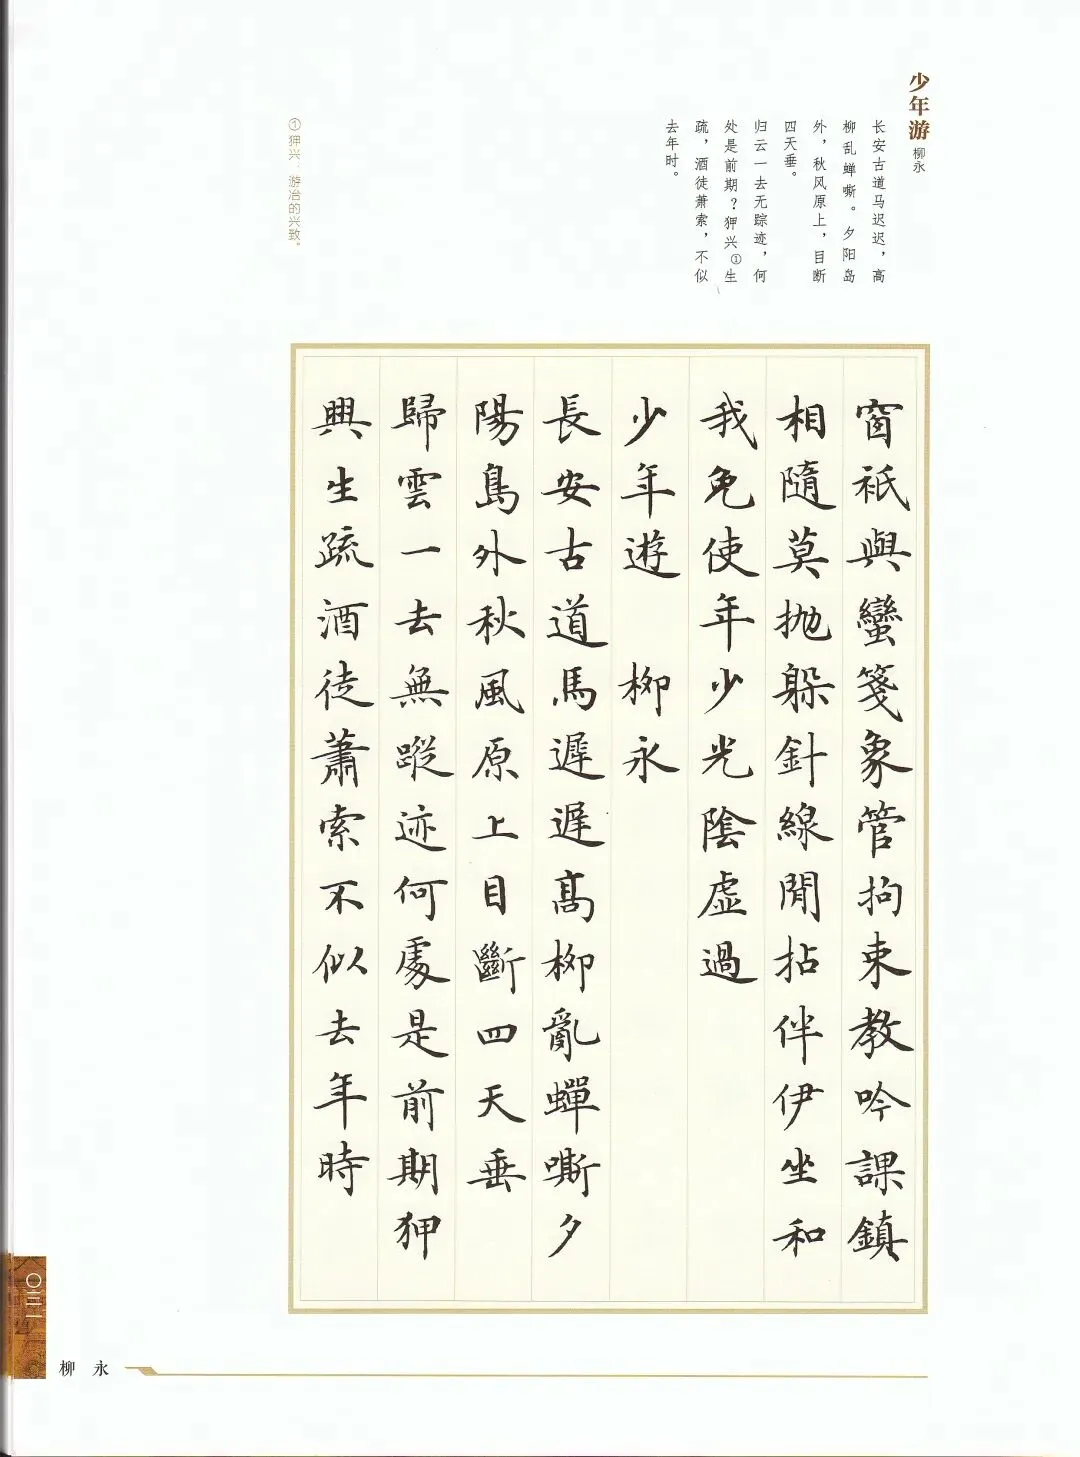 少年游 柳永
长安古道马迟迟，高
柳乱蝉嘶。夕阳岛
外，秋风原上，目断
四天垂。
归云一去无踪迹，何
处是前期？狎兴①生
疏，酒徒萧索，不似
去年时。
①狎兴：游冶的兴致。
窗祗與蠻箋象管拘束教吟課鎮
相隨莫抛躲針線閒拈伴伊坐和
我免使年少光陰虛過
少年遊 柳永
長安古道馬遲遲高柳亂蟬嘶夕
陽島外秋風原上目斷四天垂
歸雲一去無蹤迹何處是前期狎
興生疏酒徒蕭索不似去年時
〇三一
柳永